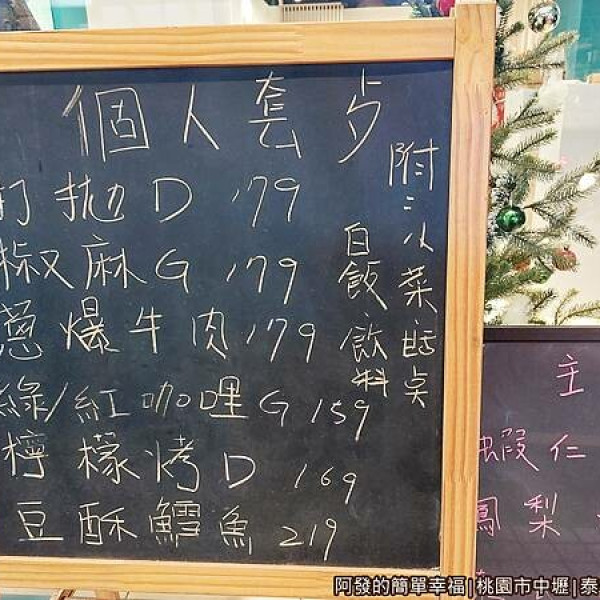 個人套歺
打拋D 179
椒麻G 179
蔥爆牛肉 179
綠/紅咖哩G 159
檸檬烤D 169
豆酥鱈魚 219
附:小菜
白飯飲料
主
蝦仁
鳳梨
阿發的簡單幸福|桃園市中壢|泰